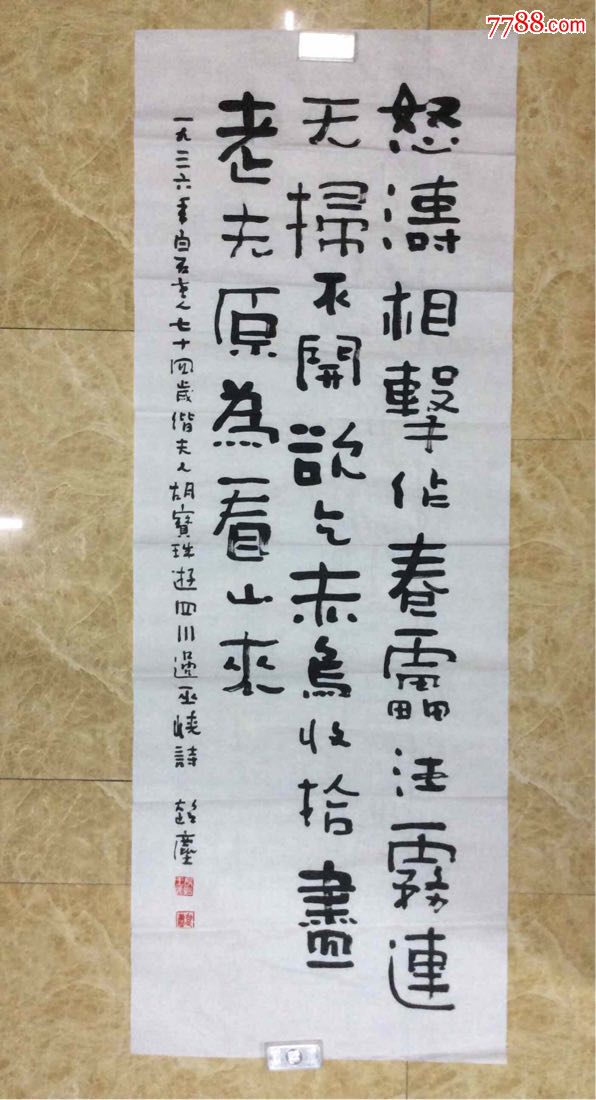 7788.com
怒濤相擊作春靁江霧連
天掃不開欲乞赤烏收拾盡
老夫原為看山來
一九三六年白石老人七十四歲偕夫人胡寶珠遊四川過巫峽詩 超塵